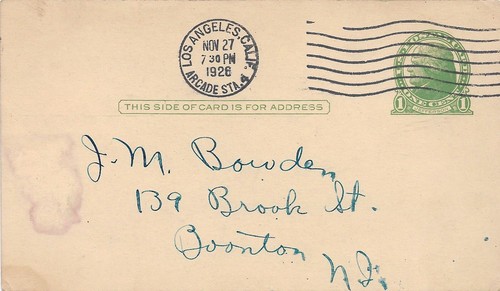 LOS ANGELES, CALIF.
NOV 27
7 30 PM
1926
ARCADE STA. 4
1 1
JEFFERSON
THIS SIDE OF CARD IS FOR ADDRESS
J. M. Bowden
139 Brook St.
Boonton
N.J.